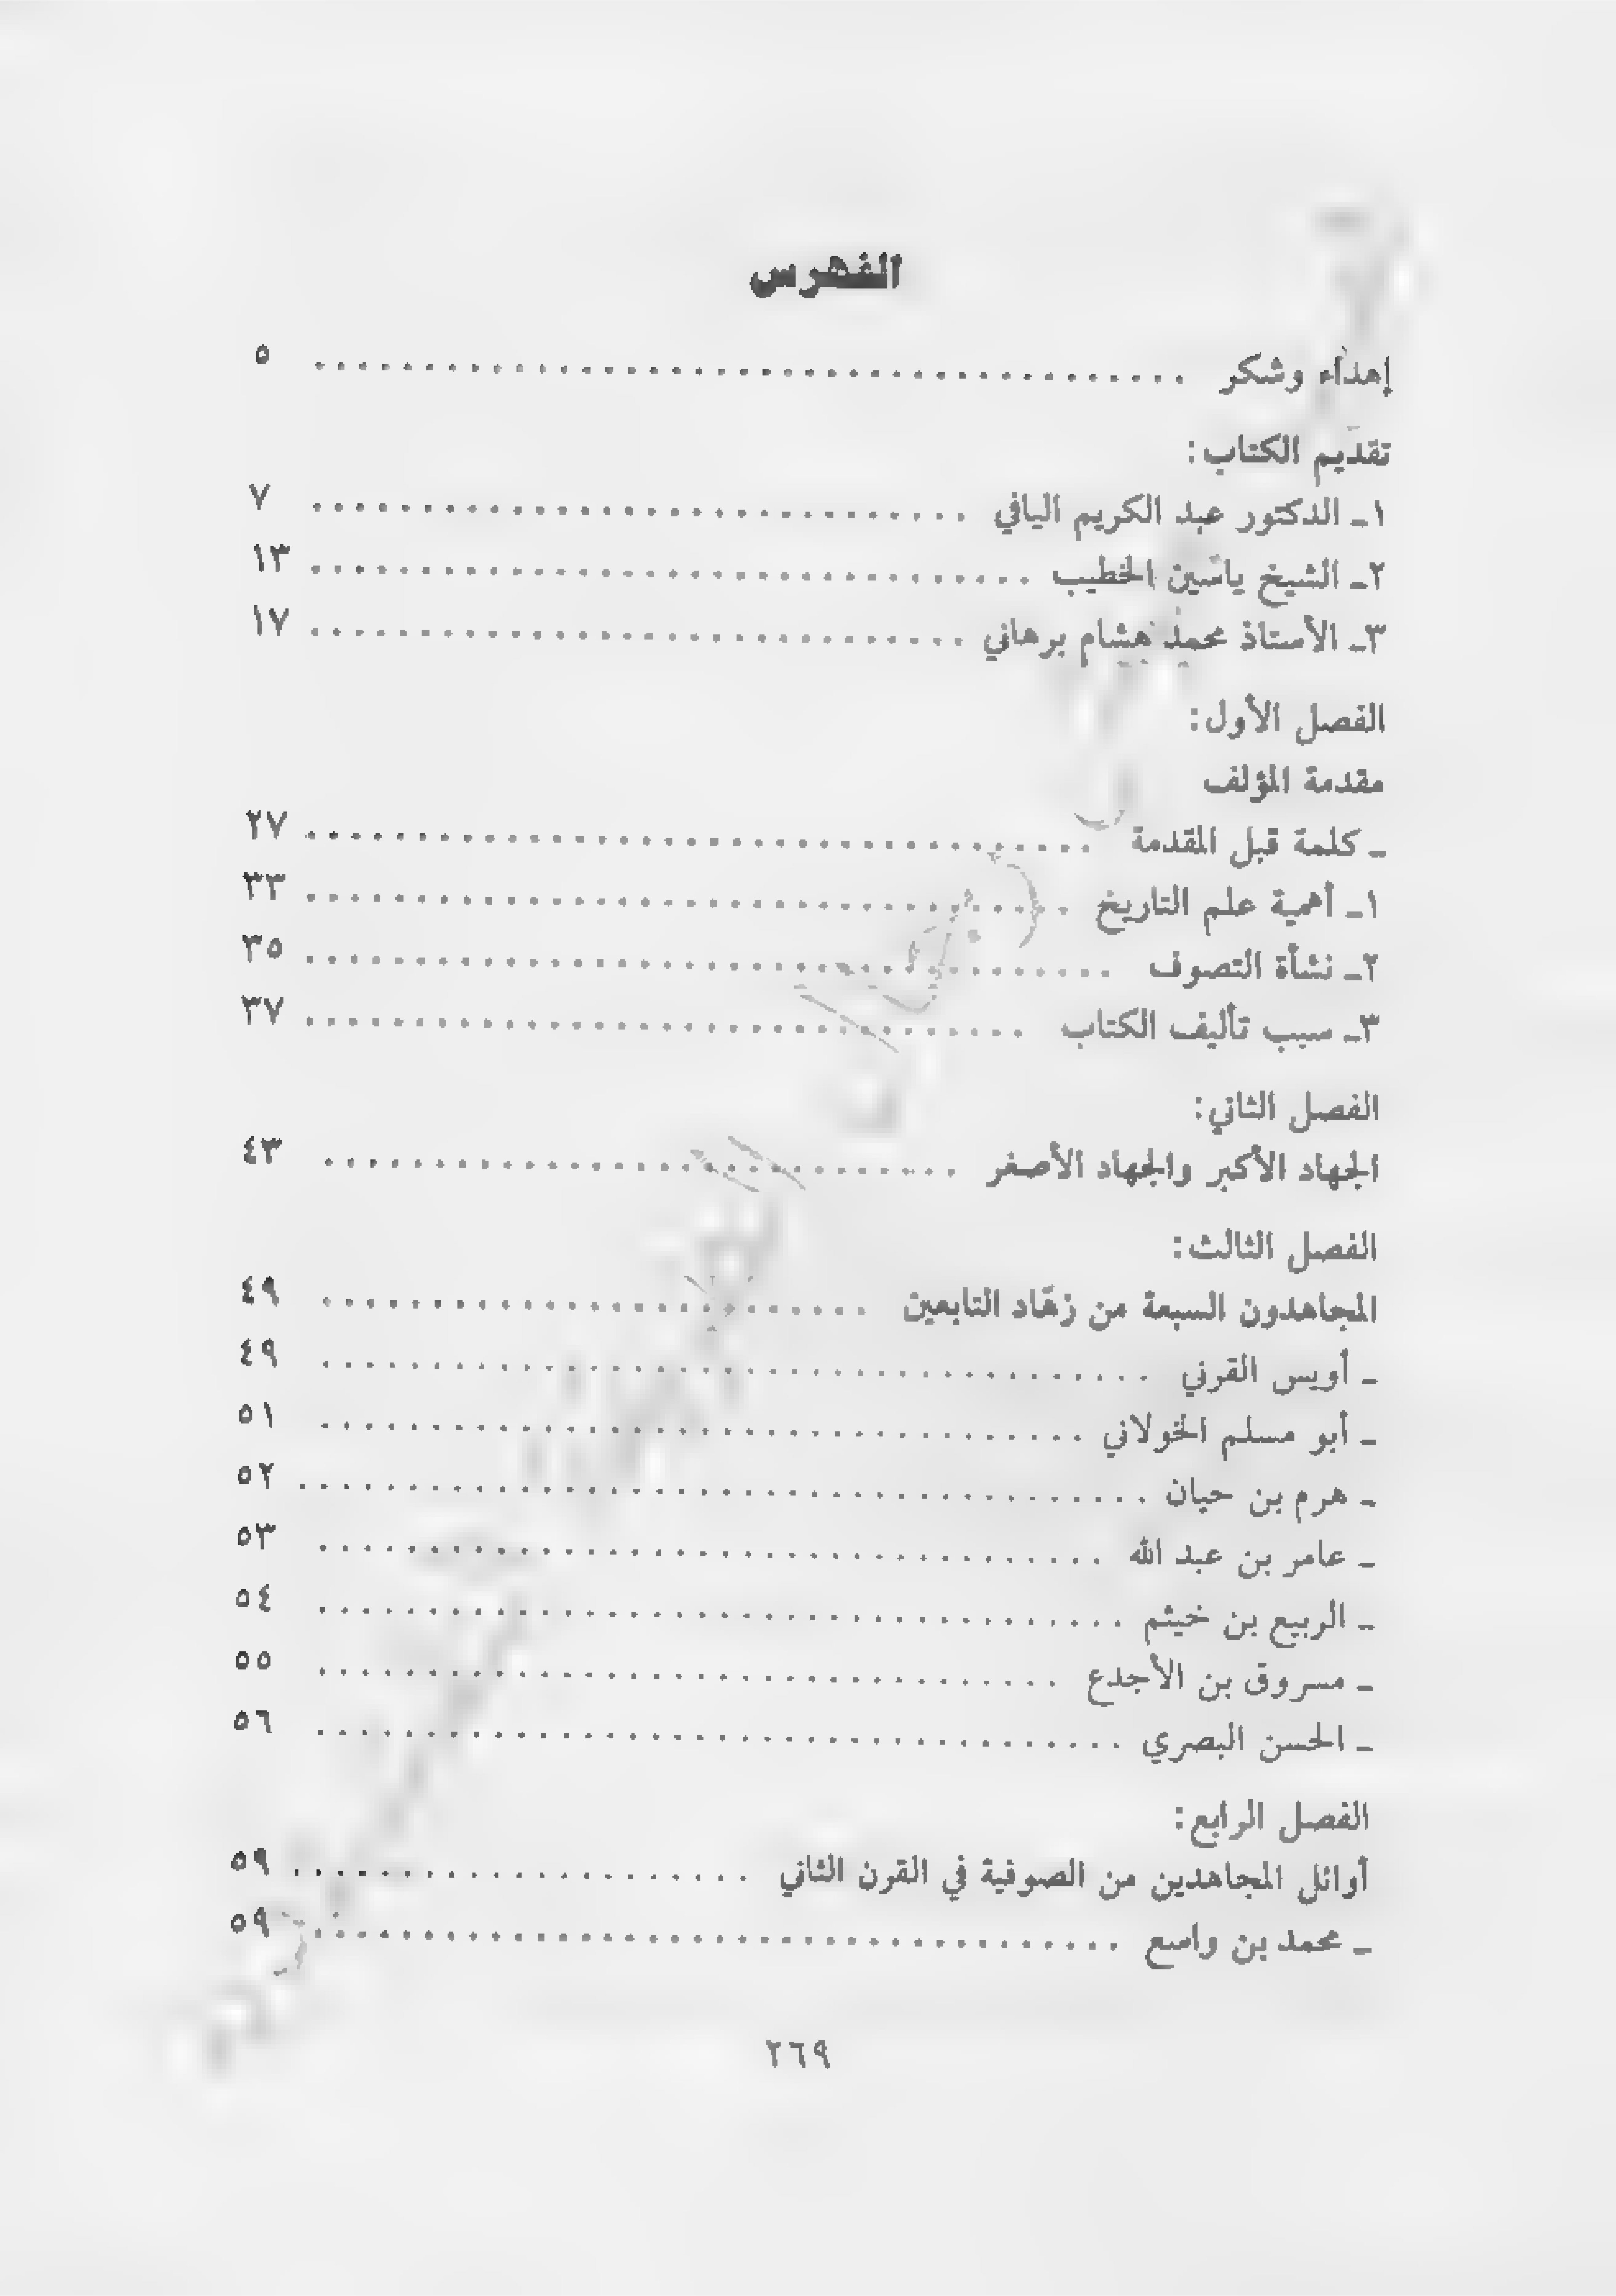 الفهرس
إهداء وشكر ...................................... ٥
تقديم الكتاب:
١ـ الدكتور عبد الكريم اليافي ............................. ٧
٢ـ الشيخ ياسين الخطيب ................................ ١٣
٣ـ الأستاذ محمد هشام برهاني ............................. ١٧
الفصل الأول:
مقدمة المؤلف
ـ كلمة قبل المقدمة ................................... ٢٧
١ـ أهمية علم التاريخ .................................. ٣٣
٢ـ نشأة التصوف .................................... ٣٥
٣ـ سبب تأليف الكتاب ................................ ٣٧
الفصل الثاني:
الجهاد الأكبر والجهاد الأصغر ............................ ٤٣
الفصل الثالث:
المجاهدون السبعة من زهّاد التابعين ........................ ٤٩
ـ أويس القرني ..................................... ٤٩
ـ أبو مسلم الخولاني .................................. ٥١
ـ هرم بن حيان ...................................... ٥٢
ـ عامر بن عبد الله ................................... ٥٣
ـ الربيع بن خيثم .................................... ٥٤
ـ مسروق بن الأجدع ................................. ٥٥
ـ الحسن البصري .................................... ٥٦
الفصل الرابع:
أوائل المجاهدين من الصوفية في القرن الثاني ..................... ٥٩
ـ محمد بن واسع .................................... ٥٩
٢٦٩